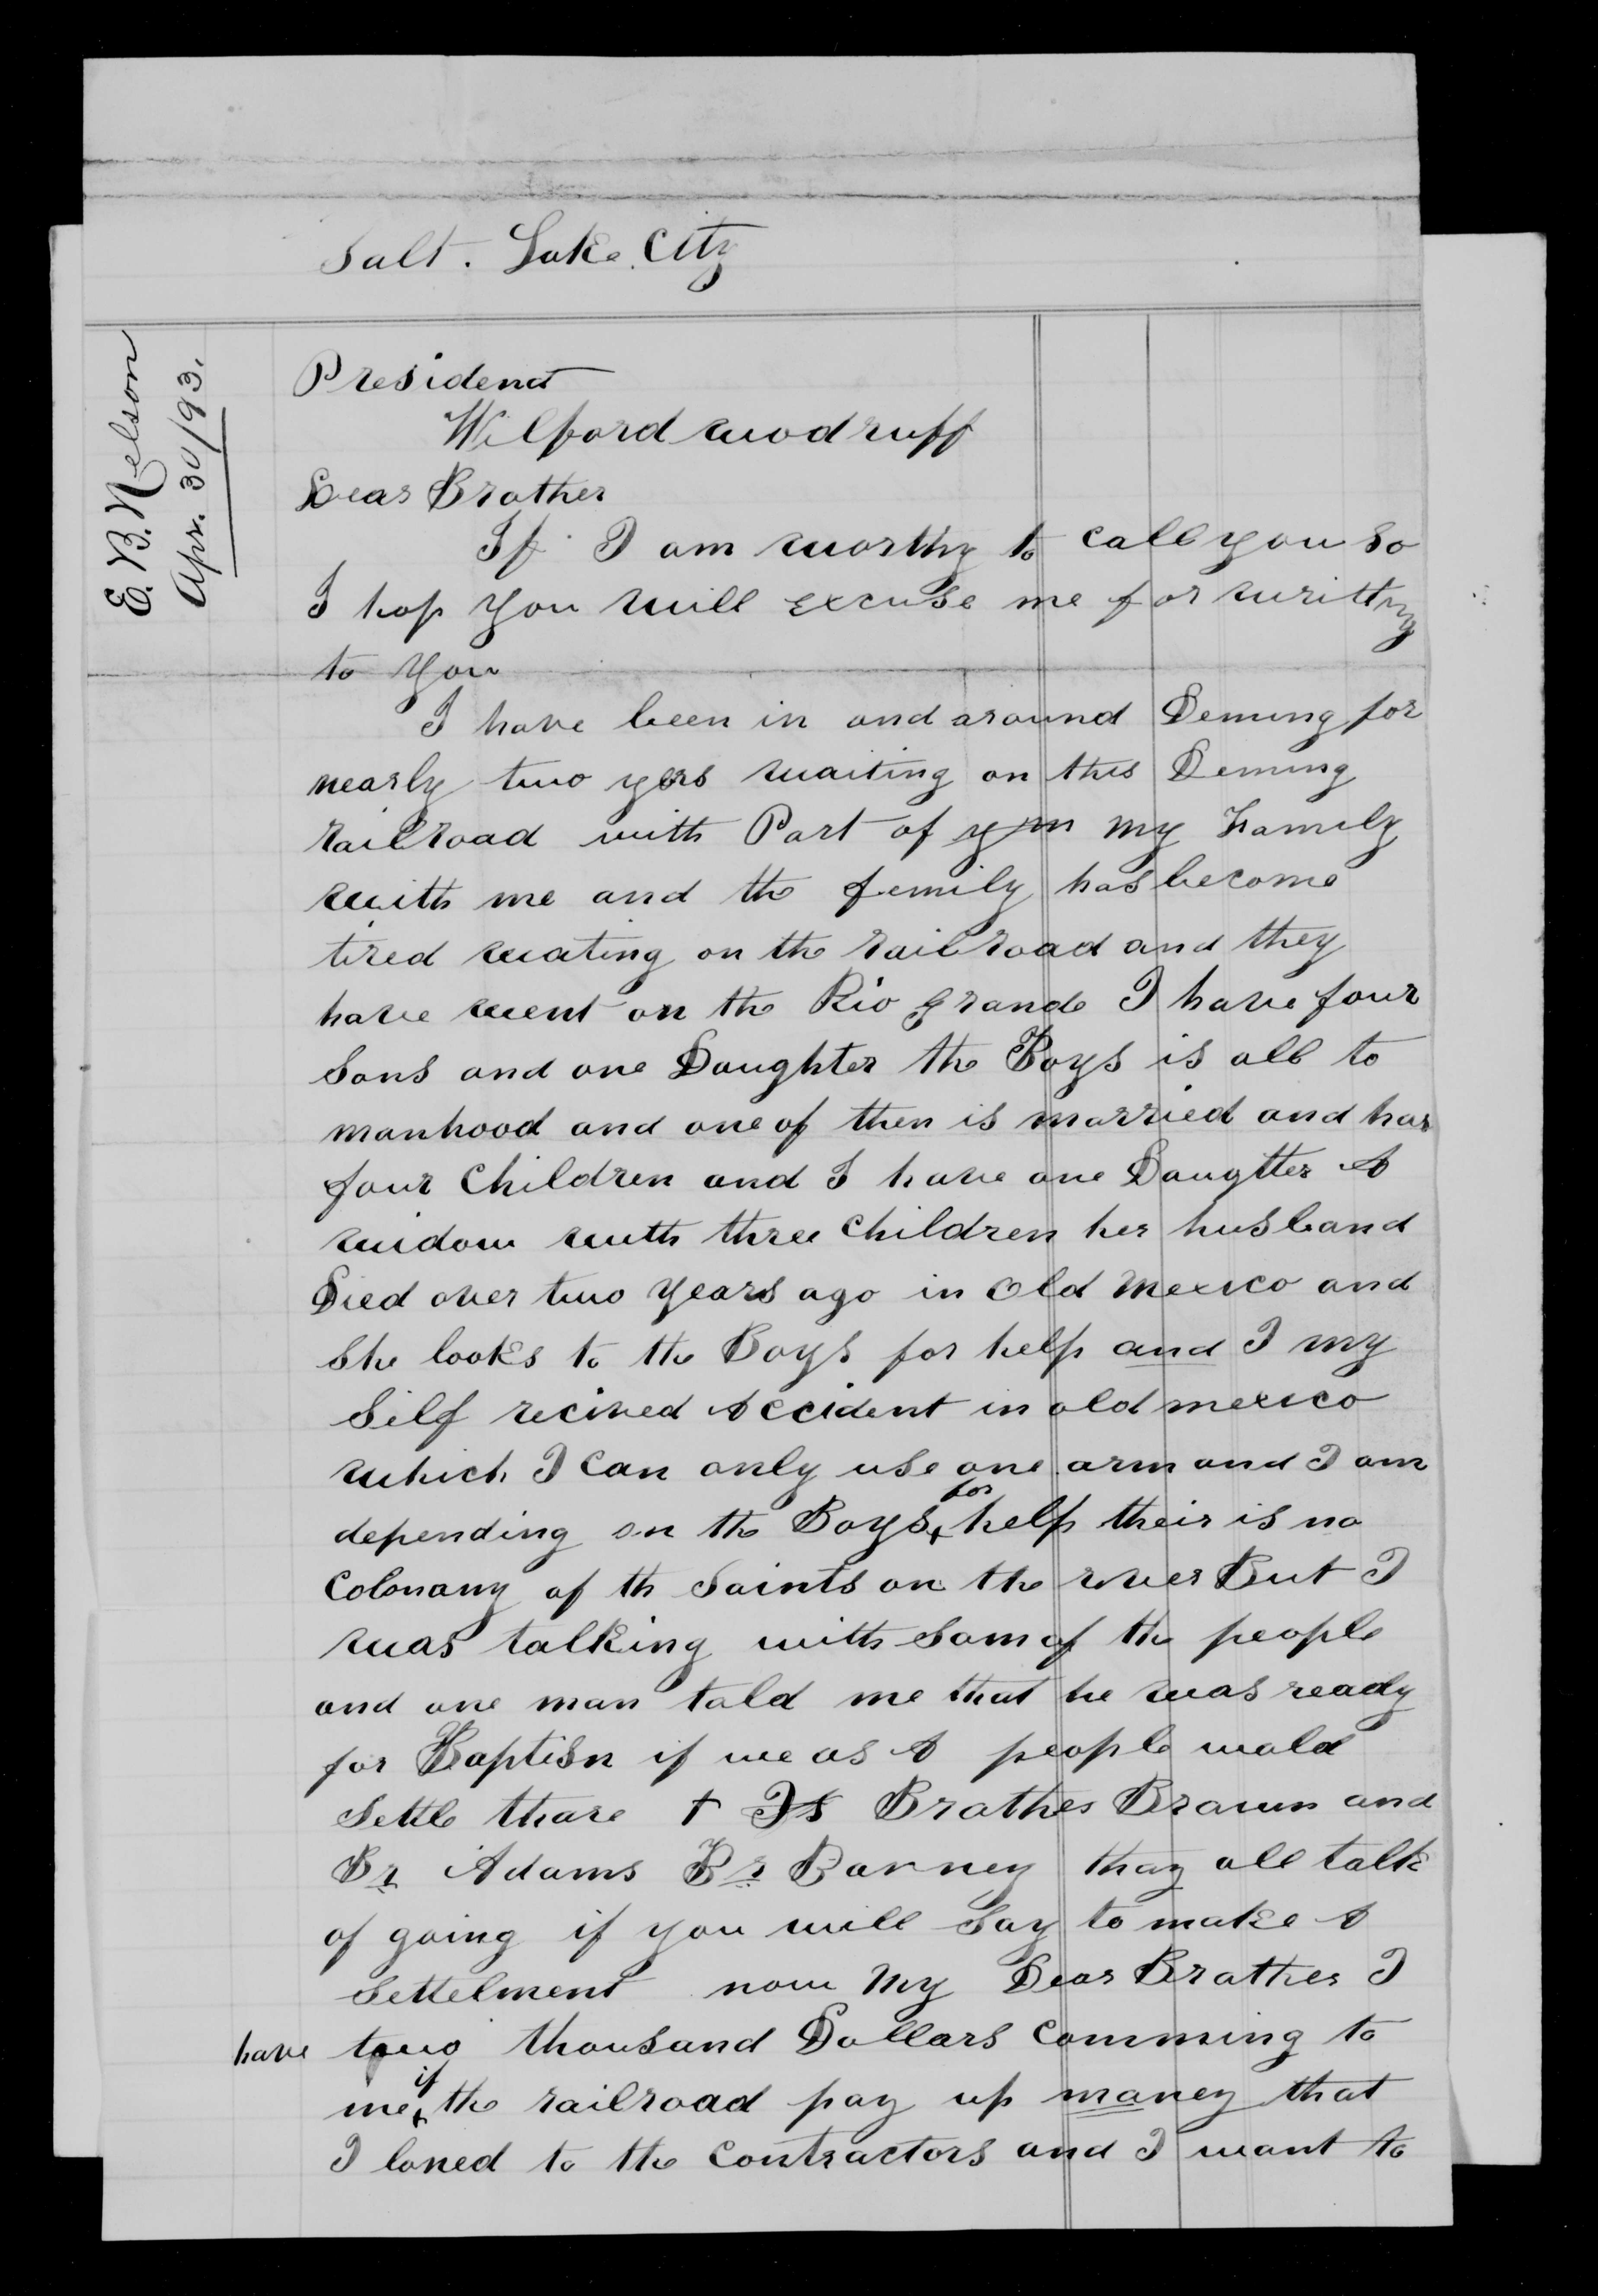 Salt. Lake. City
E. B. Nelson
Apr. 30/93.
President
Wilford woodruff
Dear Brother
If I am worthy to call you so
I hop you will excuse me for writting
to you
I have been in and around Deming for
nearly two yers waiting on this Deming
railroad with Part of my Family
with me and the femily has become
tired wating on the railroad and they
have went on the Rio grande I have four
Sons and one Daughter the Boys is all to
manhood and one of then is married and has
four Children and I have one Daugtter A
widow with three Children her husband
Died over two years ago in Old Mexico and
She looks to the Boys for help and I my
Self recived Accident in old mexico
which I Can only use one arm and I am
depending on the Boys for help their is no
Colonany of th Saints on the river But I
was talking with Som of the people
and one man told me that he was ready
for Baptisn if we as A people wold
Settle thare + Brother Brown and
Br Adams Br Barney thay all talk
of going if you will Say to make A
Settelment now My Dear Brother I
have two thousand Dollars Comming to
me if the railroad pay up maney that
I loned to the Contractors and I want to